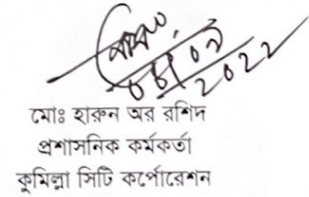 ২০২২
মোঃ হারুন অর রশিদ
প্রশাসনিক কর্মকর্তা
কুমিল্লা সিটি কর্পোরেশন